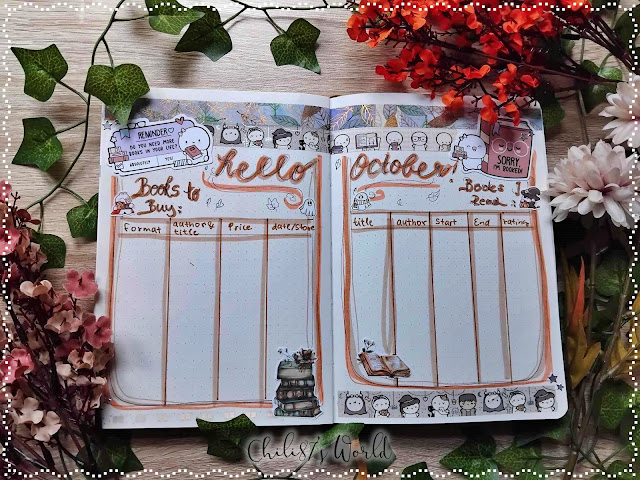 REMINDER
DO YOU NEED MORE
BOOKS IN YOUR LIFE?
ABSOLUTELY YES
hello
Books to
Buy:
Format author & title Price date/store
SORRY,
I'M BOOKED!
October!
Books I
Read:
title author Start End rating
Chilis7's World